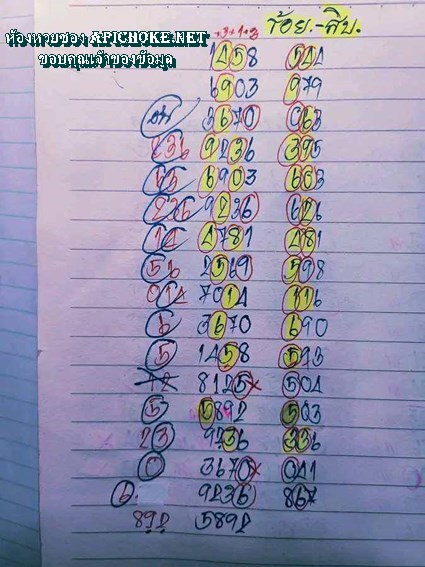 ห้องหวยซอง APICHOKE.NET
ขอบคุณเจ้าของข้อมูล
ร้อย.-สิบ.
1458 544
6903 979
3670 063
236 9236 395
6903 603
236 9236 626
14 4781 481
56 2569 598
014 7014 116
6 3670 690
5 1458 593
12 8125x 504
5 5892 503
23 9236 336
0 3670x 041
6 9236 867
892 5892